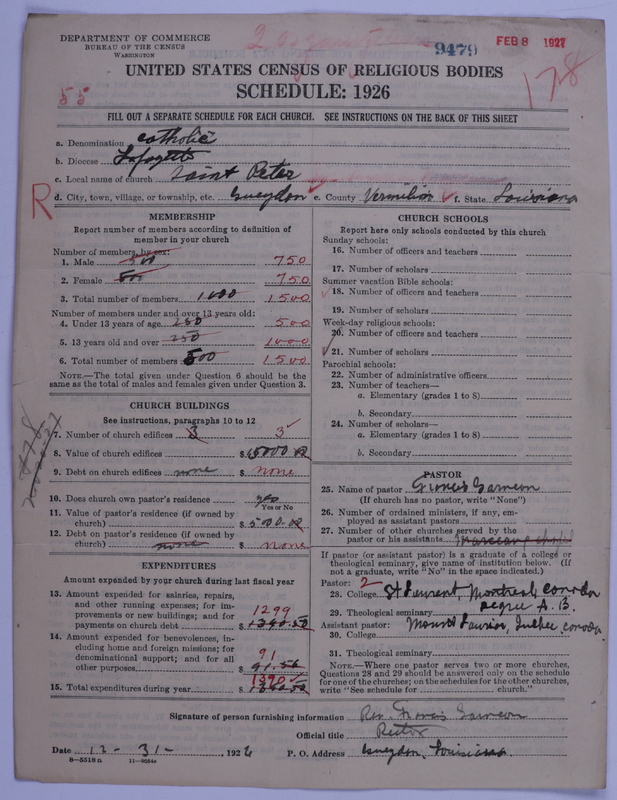 DEPARTMENT OF COMMERCE
BUREAU OF THE CENSUS
WASHINGTON
9479
FEB 8 1927
UNITED STATES CENSUS OF RELIGIOUS BODIES
SCHEDULE: 1926
55
178
FILL OUT A SEPARATE SCHEDULE FOR EACH CHURCH. SEE INSTRUCTIONS ON THE BACK OF THIS SHEET
a. Denomination Catholic
b. Diocese Lafayette
c. Local name of church Saint Peter
R
d. City, town, village, or township, etc. Gueydon e. County Vermilion f. State Louisiana
MEMBERSHIP
Report number of members according to definition of
member in your church
Number of members, by sex:
1. Male 500 750
2. Female 500 750
3. Total number of members 1000 1500
Number of members under and over 13 years old:
4. Under 13 years of age 250 500
5. 13 years old and over 250 1000
6. Total number of members 500 1500
NOTE.—The total given under Question 6 should be the
same as the total of males and females given under Question 3.
CHURCH BUILDINGS
See instructions, paragraphs 10 to 12
7. Number of church edifices 3 3
8. Value of church edifices $
9. Debt on church edifices none $ none
10. Does church own pastor's residence yes
Yes or No
11. Value of pastor's residence (if owned by
church) $ 5000.00
12. Debt on pastor's residence (if owned by
church) none $ none
EXPENDITURES
Amount expended by your church during last fiscal year
13. Amount expended for salaries, repairs,
and other running expenses; for im-
provements or new buildings; and for
payments on church debt 1299 $
14. Amount expended for benevolences, in-
cluding home and foreign missions; for
denominational support; and for all
other purposes 91 $ 91.56
15. Total expenditures during year 1390 $
CHURCH SCHOOLS
Report here only schools conducted by this church
Sunday schools:
16. Number of officers and teachers
17. Number of scholars
Summer vacation Bible schools:
18. Number of officers and teachers
19. Number of scholars
Week-day religious schools:
20. Number of officers and teachers
21. Number of scholars
Parochial schools:
22. Number of administrative officers
23. Number of teachers—
a. Elementary (grades 1 to 8)
b. Secondary
24. Number of scholars—
a. Elementary (grades 1 to 8)
b. Secondary
PASTOR
25. Name of pastor Francis Garneau
(If church has no pastor, write "None")
26. Number of ordained ministers, if any, em-
ployed as assistant pastors
27. Number of other churches served by the
pastor or his assistants
If pastor (or assistant pastor) is a graduate of a college or
theological seminary, give name of institution below. (If
not a graduate, write "No" in the space indicated.)
Pastor: 2
28. College St Laurent, Montreal, Canada
29. Theological seminary degree A. B.
Assistant pastor: Mount Laurier, Quebec, Canada
30. College
31. Theological seminary
NOTE.—Where one pastor serves two or more churches,
Questions 28 and 29 should be answered only on the schedule
for one of the churches; on the schedules for the other churches,
write "See schedule for church."
Signature of person furnishing information Rev. Francis Garneau
Official title Rector
Date 12-31-, 1926 P. O. Address Gueydon, Louisiana
8—5518 a 11—9084a